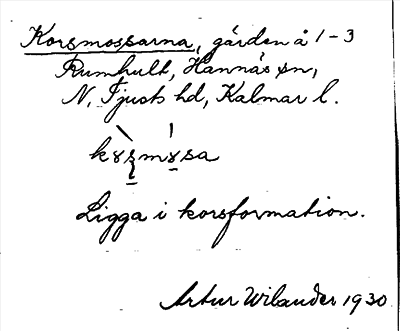 Korsmossarna, gården å 1-3
Rumhult, Hannäs sn,
N. Tjusts hd, Kalmar l.
Ligga i korsformation.
Artur Wilander 1930